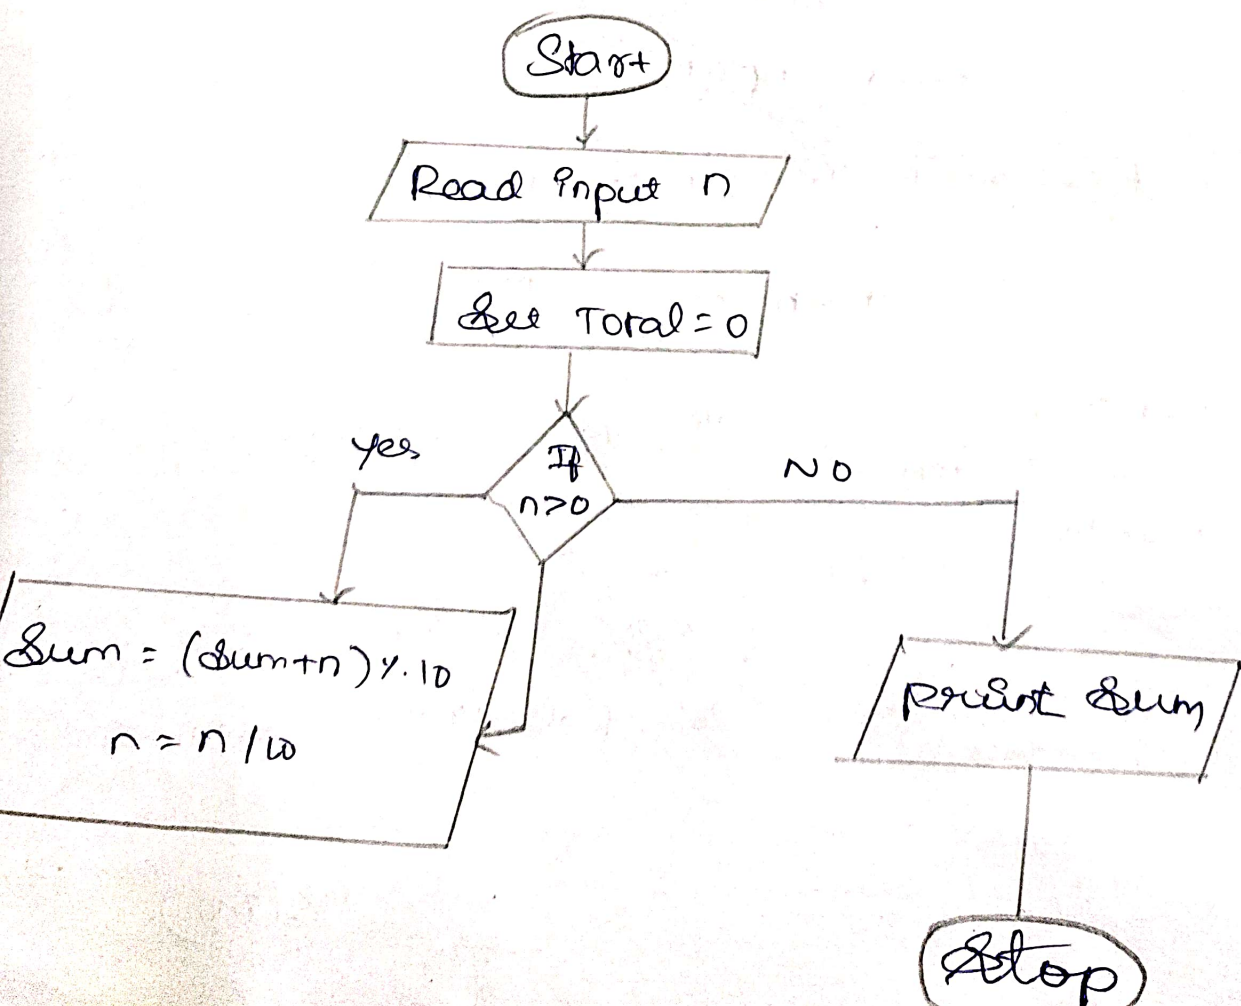 Start
Read input n
Set Total = 0
If
n>0
yes
NO
Sum = (Sum+n) %. 10
n = n / 10
print Sum
Stop